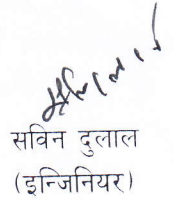 सविन दुलाल
(इन्जिनियर)